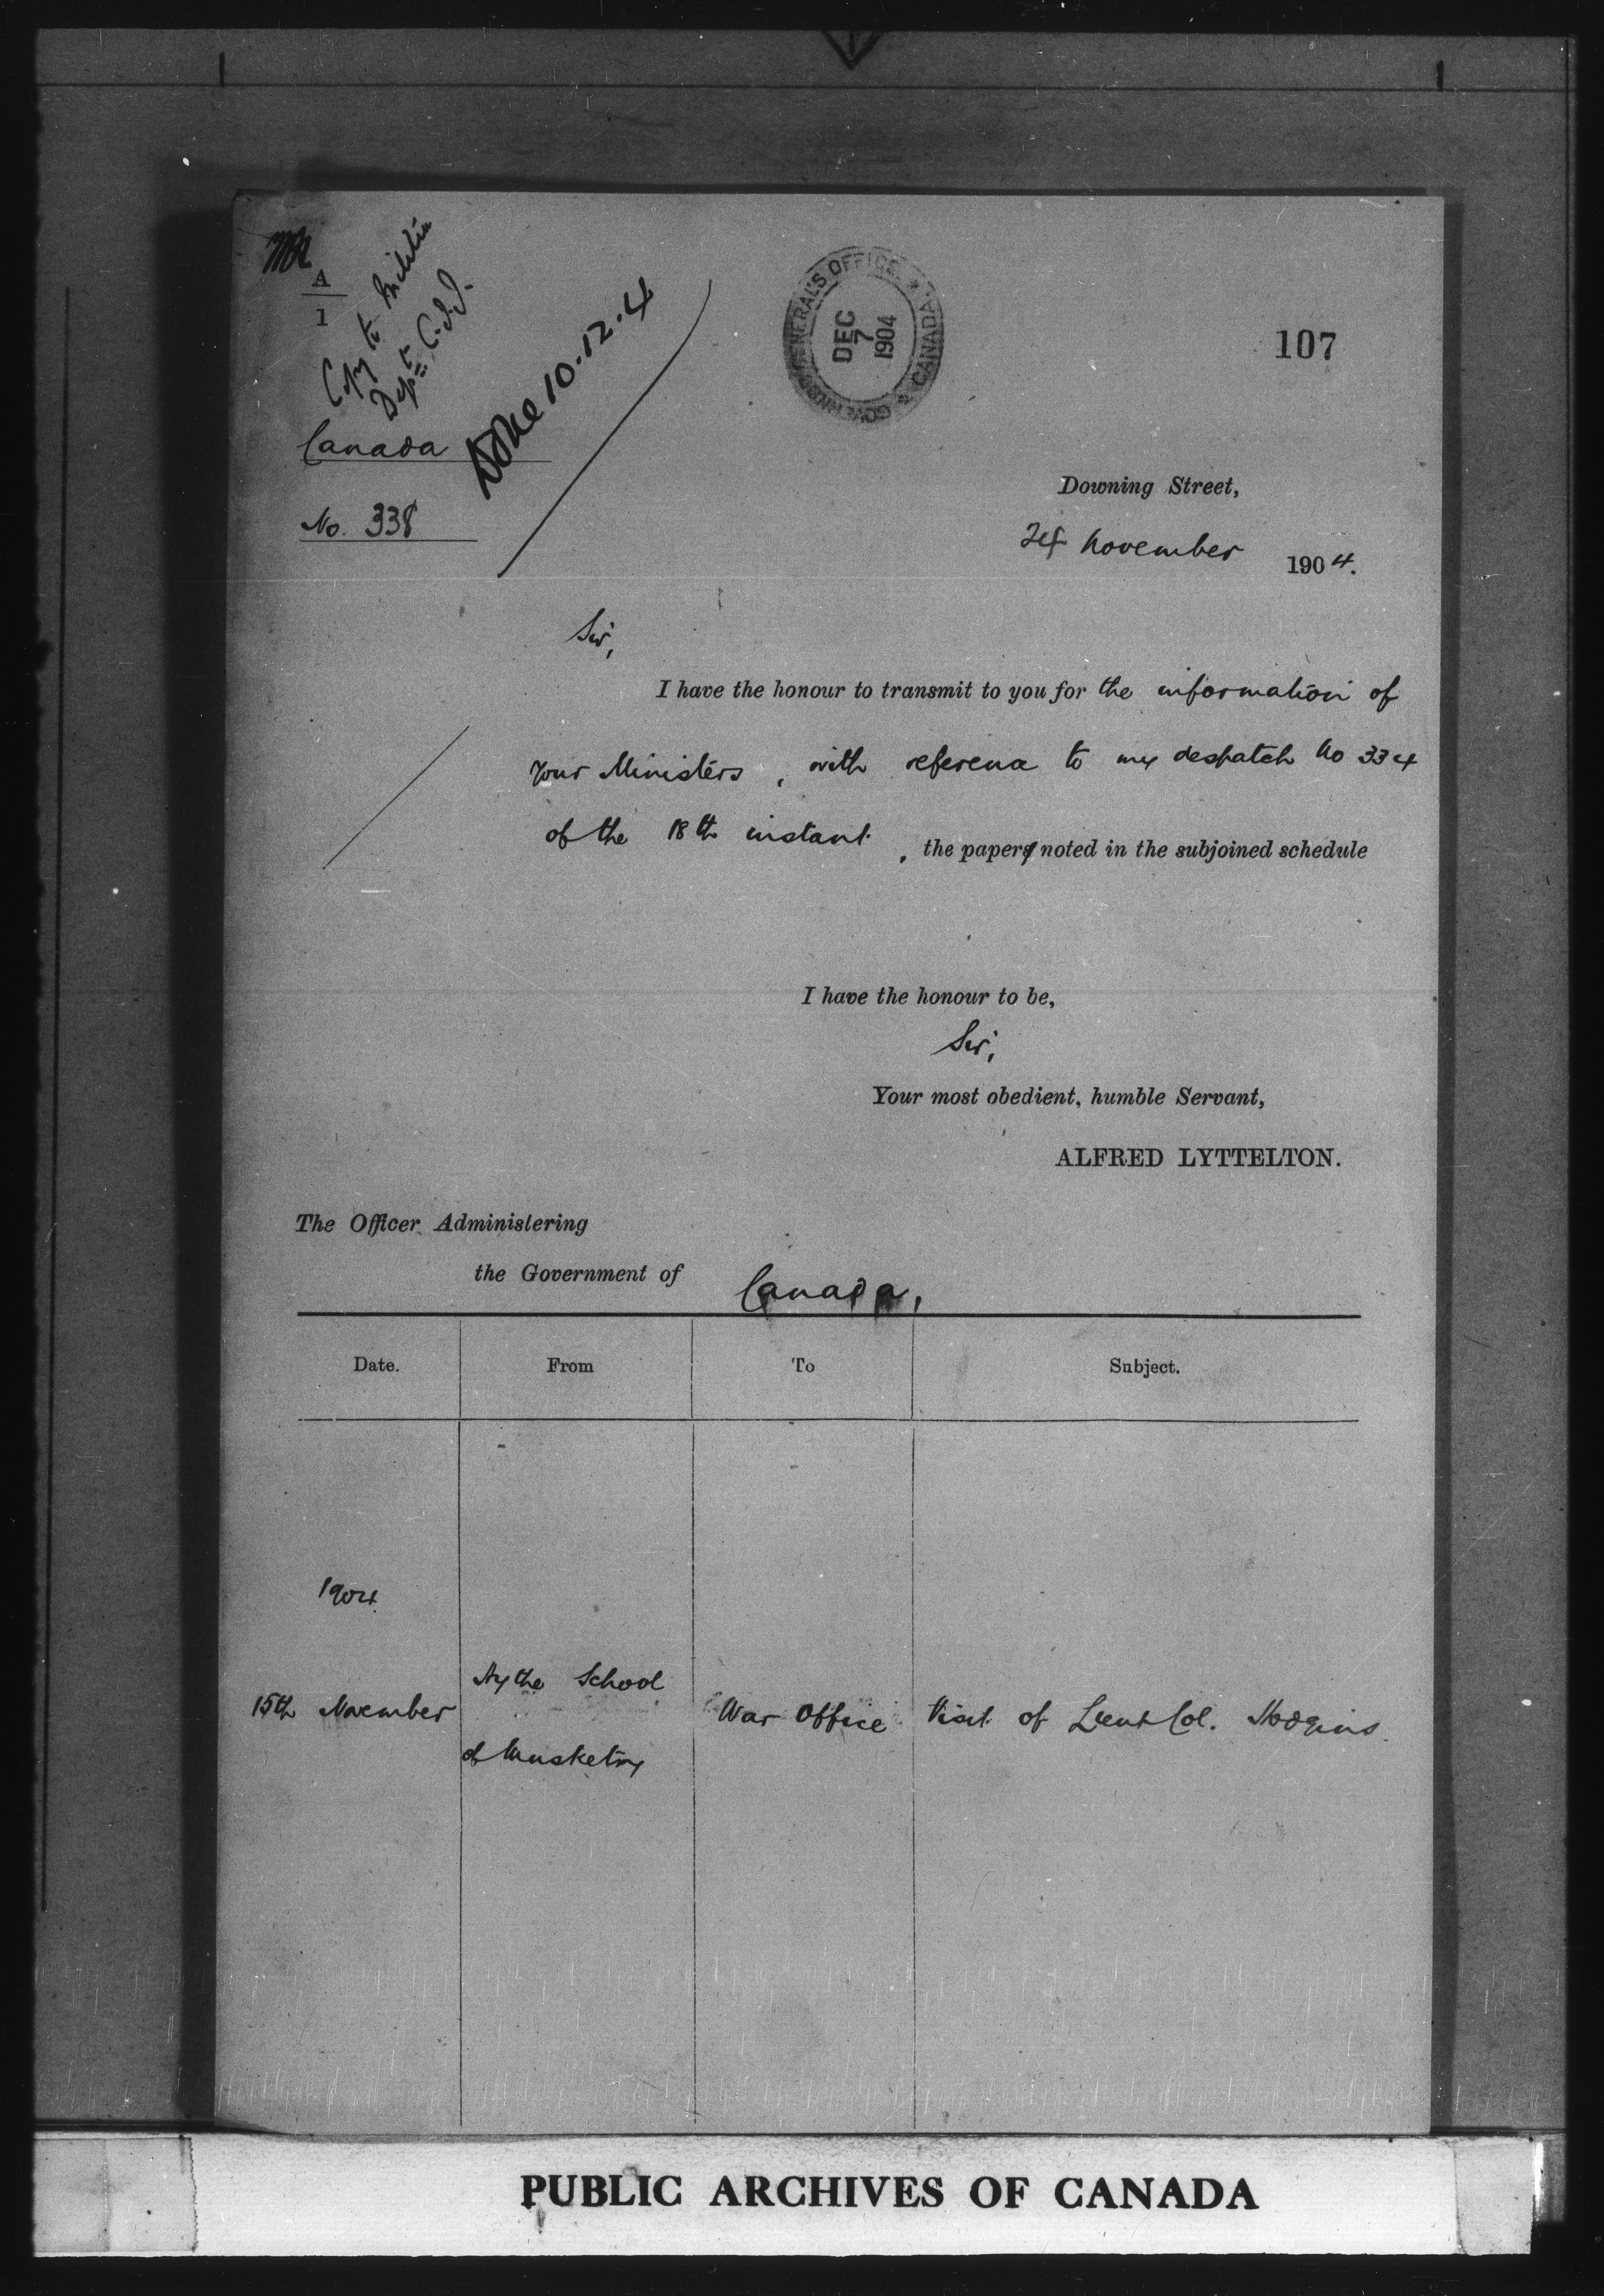 A
1
Copy to Militia
Dept
Done 10.12.4
GOVERNOR GENERAL'S OFFICE CANADA
DEC
7
1904
107
Canada
No. 338
Downing Street,
24 November 1904.
Sir,
I have the honour to transmit to you for the information of
your Ministers, with reference to my despatch No 334
of the 18th instant, the paper noted in the subjoined schedule
I have the honour to be,
Sir,
Your most obedient, humble Servant,
ALFRED LYTTELTON.
The Officer Administering
the Government of Canada,
Date. From To Subject.
1904
15th November Hythe School of Musketry War Office Visit of Lieut Col. Hodgins.
PUBLIC ARCHIVES OF CANADA